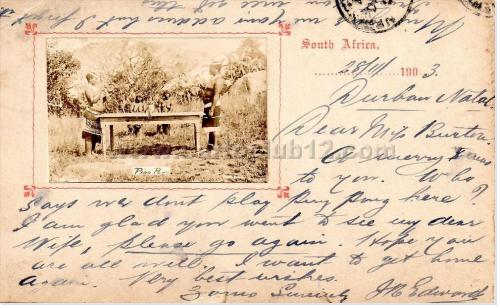 South Africa,
28/11 1903.
Durban Natal
Dear Miss Burton
A merry Xmas
to you. Who?
Says we dont play ping pong here?
I am glad you went to see my dear
Wife, please go again. Hope you
are all well. I want to get home
again. Very best wishes.
Yours Sincerely
Ping Po